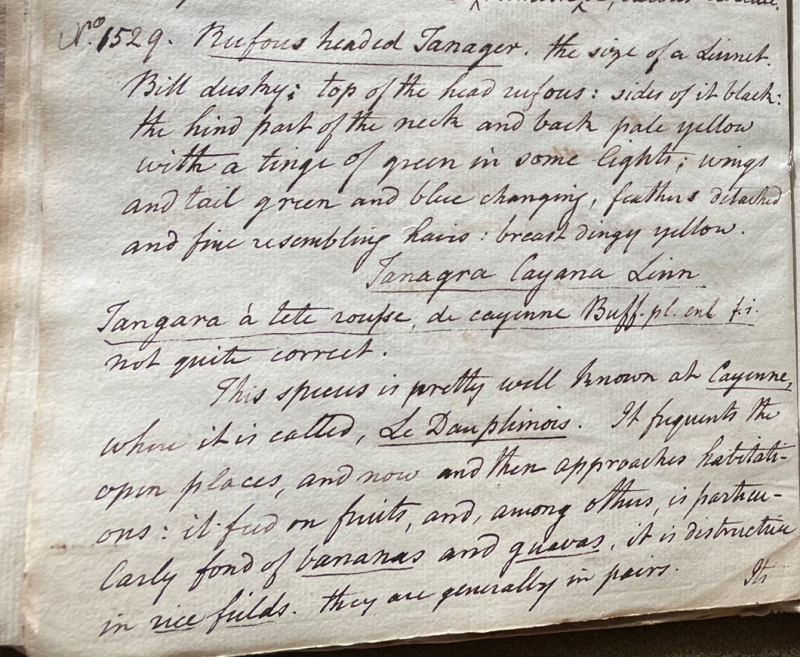 No. 1529. Rufous headed Tanager. the size of a Linnet.
Bill dusky: top of the head rufous: sides of it black:
the hind part of the neck and back pale yellow
with a tinge of green in some lights; wings
and tail green and blue changing, feathers detached
and fine resembling hairs: breast dingy yellow.
Tanagra Cayana Linn
Tangara à tete rousse, de cayenne Buff. pl. enl f.1.
not quite correct.
This species is pretty well known at Cayenne,
where it is called, Le Dauphinois. It frequents the
open places, and now and then approaches habitati-
ons: it feed on fruits, and, among others, is particu-
larly fond of bananas and guavas, it is destructive
in rice fields. they are generally in pairs.
Its